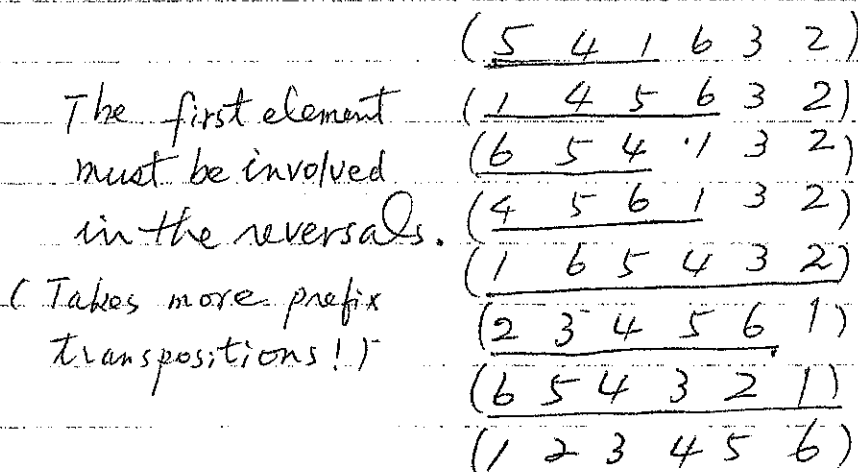 The first element
must be involved
in the reversals.
( Takes more prefix
transpositions! )
( 5 4 1 6 3 2 )
( 1 4 5 6 3 2 )
( 6 5 4 1 3 2 )
( 4 5 6 1 3 2 )
( 1 6 5 4 3 2 )
( 2 3 4 5 6 1 )
( 6 5 4 3 2 1 )
( 1 2 3 4 5 6 )